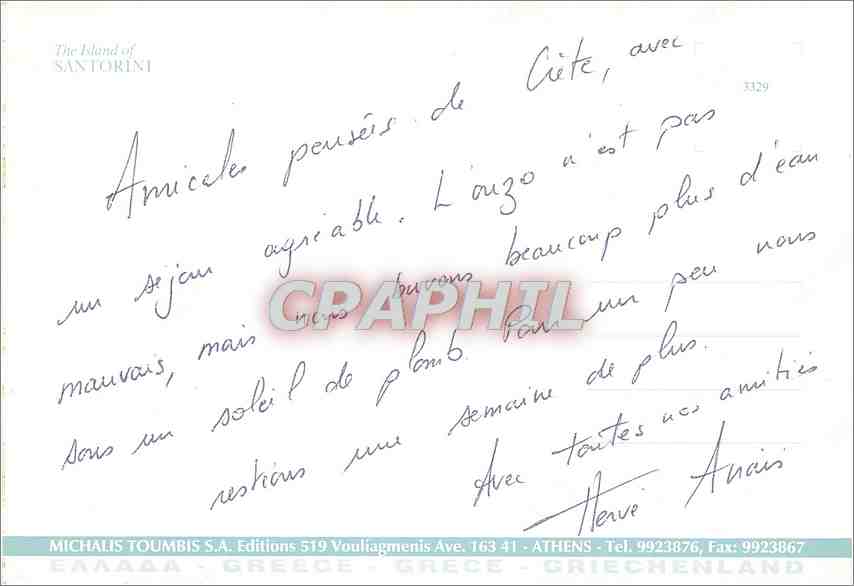 The Island of
SANTORINI
3329
Amicales pensées de Crète, avec
un séjour agréable. L'ouzo n'est pas
mauvais, mais nous buvons beaucoup plus d'eau
sous un soleil de plomb. Pour un peu nous
restions une semaine de plus.
Avec toutes nos amitiés
Hervé Anaïs
CPAPHIL
MICHALIS TOUMBIS S.A. Editions 519 Vouliagmenis Ave. 163 41 - ATHENS - Tel. 9923876, Fax: 9923867
ΕΛΛΑΔΑ - GREECE - GRECE - GRIECHENLAND